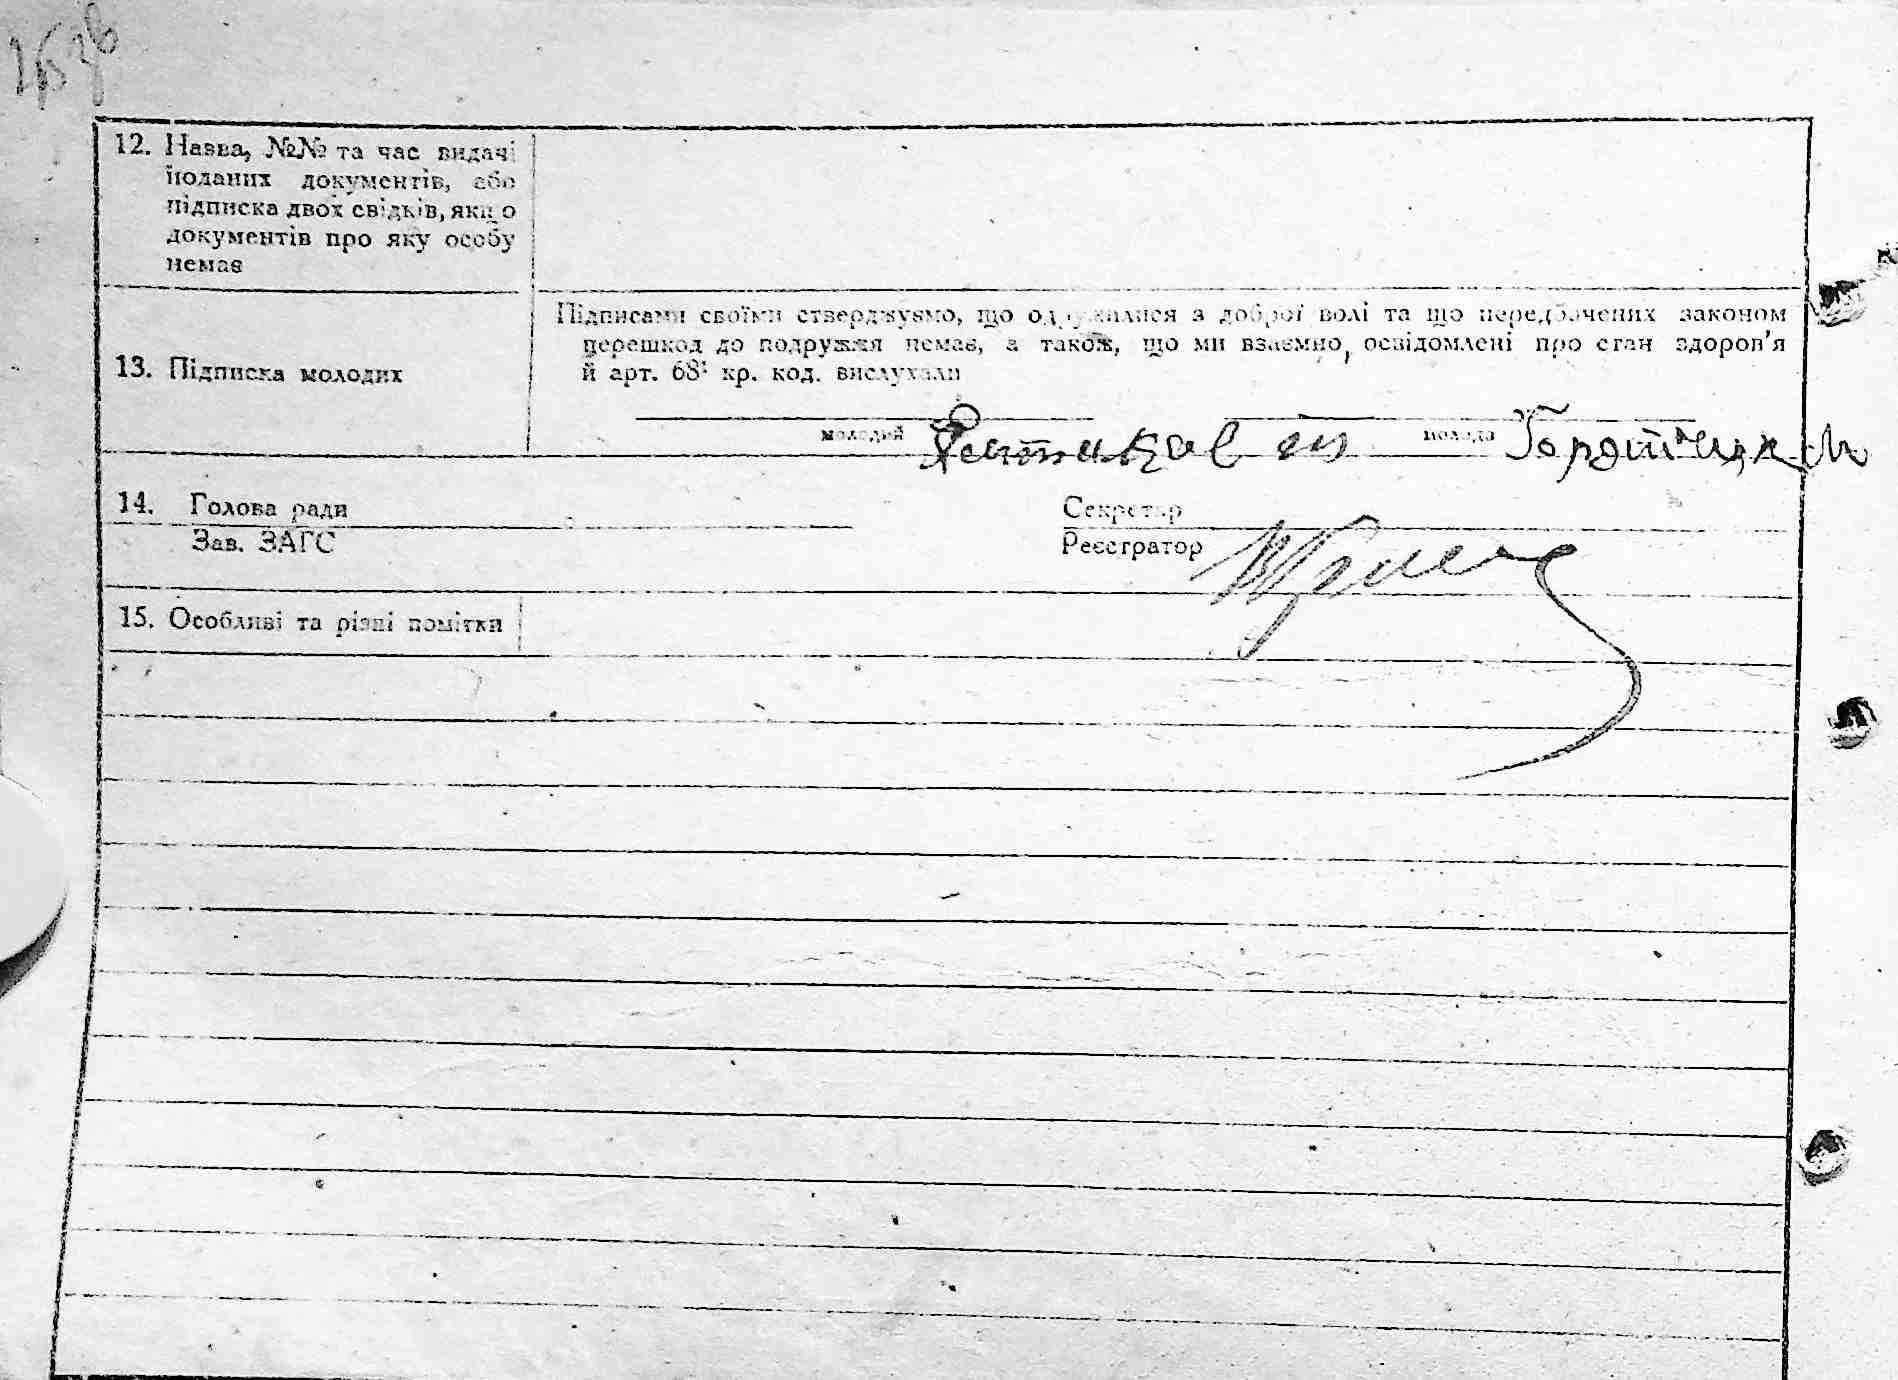 12. Назва, №№ та час видачі
поданих документів, або
підписка двох свідків, якщо
документів про яку особу
немає
Підписами своїми стверджуємо, що одружилися з доброї волі та що передбачених законом
перешкод до подружжя немає, а також, що ми взаємно, освідомлені про стан здоров'я
й арт. 68¹ кр. код. вислухали
13. Підписка молодих
молодий молода
14. Голова ради Секретар
Зав. ЗАГС Реєстратор
15. Особливі та різні помітки